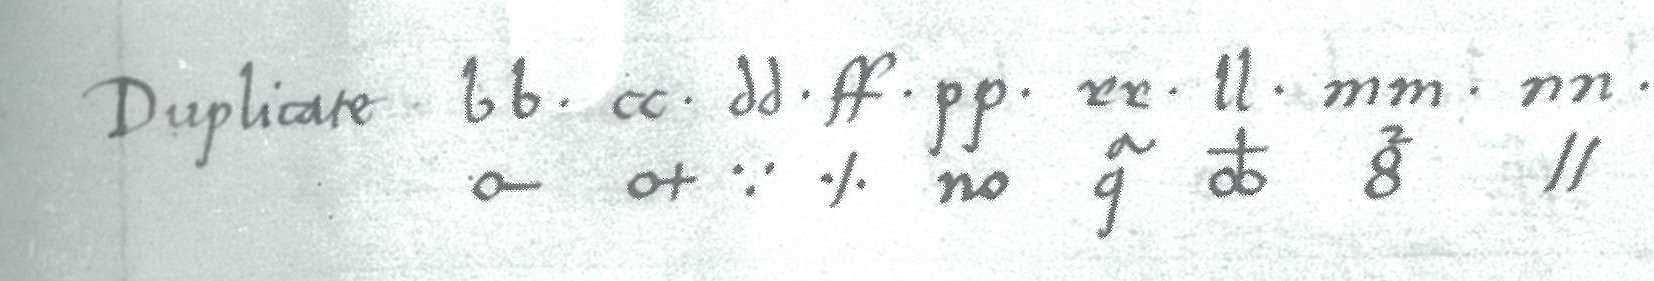 Duplicate · bb · cc · dd · ff · pp · rr · ll · mm · nn ·
o— o+ ∵ ·/· no q 8 //